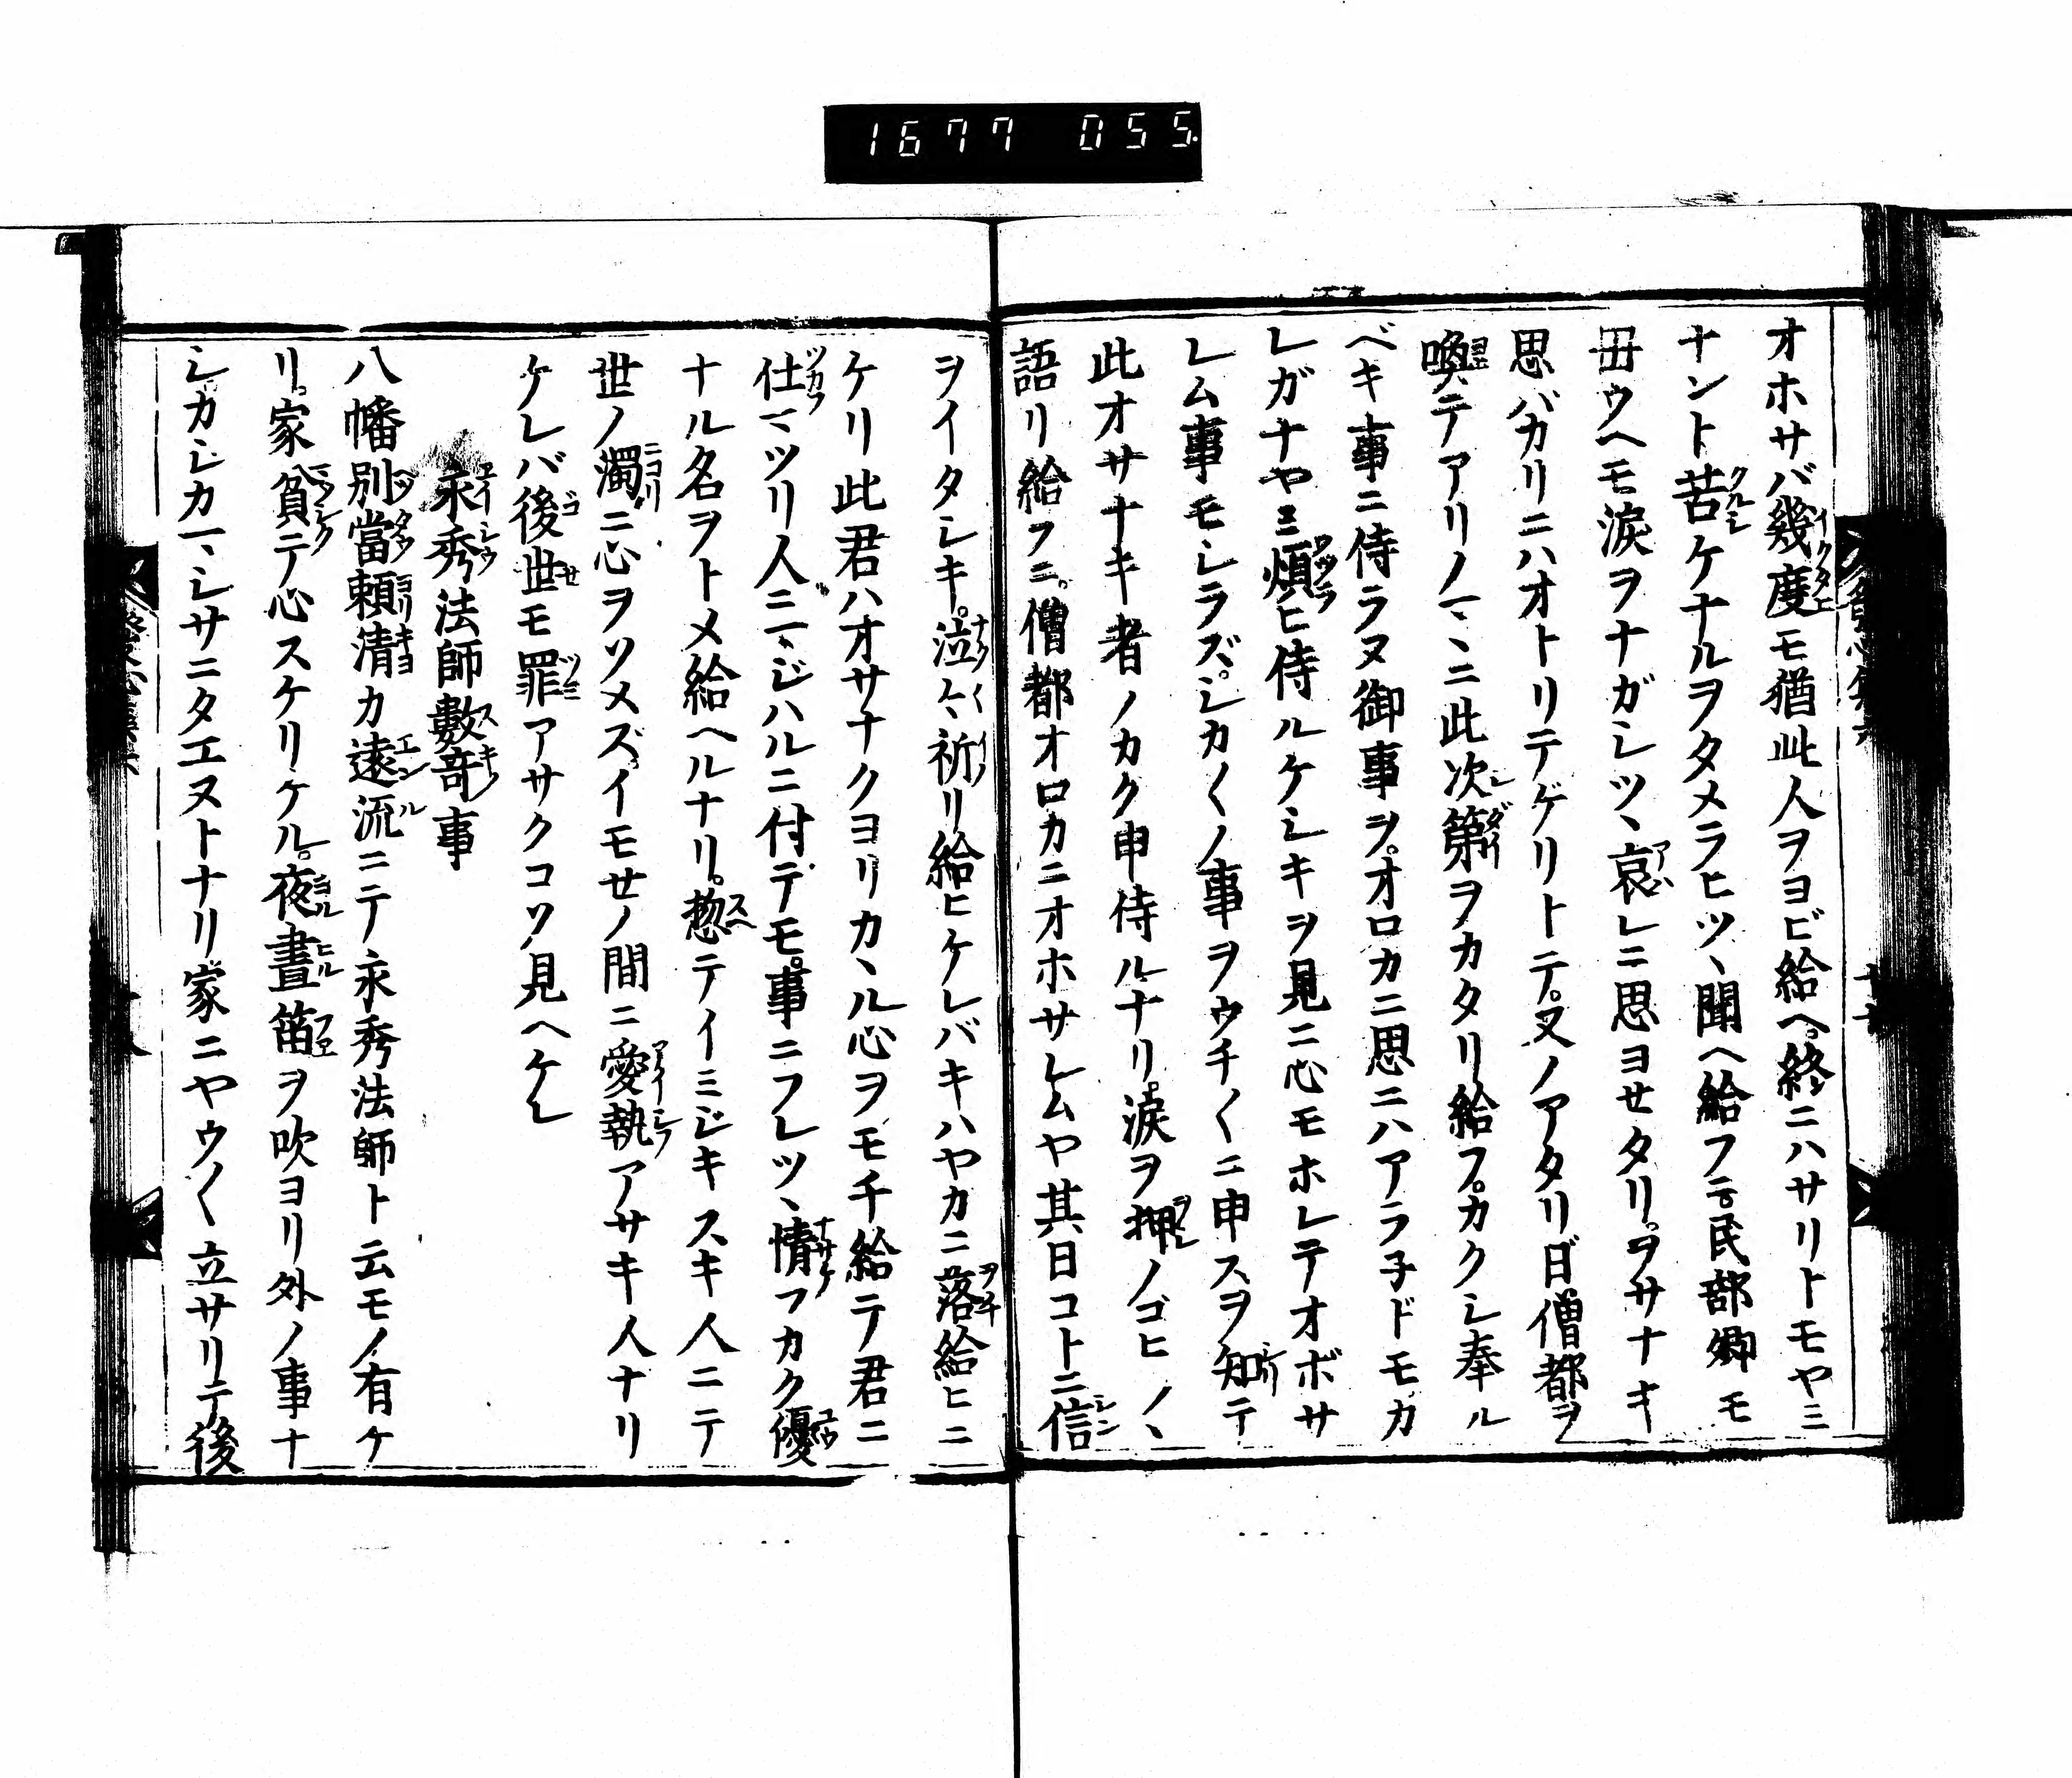 1677 055
オホサバ幾度モ猶此人ヲヨビ給ヘ。終ニハサリトモヤミ
ナント苦ケナルヲタメラヒツヽ聞ヘ給フニ。民部卿モ
母ウヘモ涙ヲナガシツヽ哀レニ思ヨセタリ。ヲサナキ
思バカリニハオトリテゲリトテ。又ノアタリ日僧都ヲ
喚テアリノマヽニ此次第ヲカタリ給フ。カクシ奉ル
ベキ事ニ侍ラヌ御事ヲ。オロカニ思ニハアラ子ドモカ
レガナヤミ煩ヒ侍ルケシキヲ見ニ心モホレテオボサ
レム事モシラズ。シカ〱ノ事ヲウチ〱ニ申スヲ知テ
此オサナキ者ノカク申侍ルナリ。涙ヲ押ノゴヒノヽ
語リ給フニ。僧都オロカニオホサレムヤ其日コトニ信
ヲイタシキ。泣々祈リ給ヒケレバキハヤカニ落給ヒニ
ケリ此君ハオサナクヨリカヽル心ヲモチ給テ君ニ
仕マツリ人ニマジハルニ付テモ。事ニフレツヽ情フカク優
ナル名ヲトメ給ヘルナリ。惣テイミジキスキ人ニテ
世ノ濁ニ心ヲソメズ。イモセノ間ニ愛執アサキ人ナリ
ケレバ後世モ罪アサクコソ見ヘケレ
永秀法師數竒事
八幡別當頼清カ遠流ニテ永秀法師ト云モノ有ケ
リ。家貧テ心スケリケル。夜晝笛ヲ吹ヨリ外ノ事ナ
シ。カシカマシサニタエヌトナリ家ニヤウ〱立サリテ後